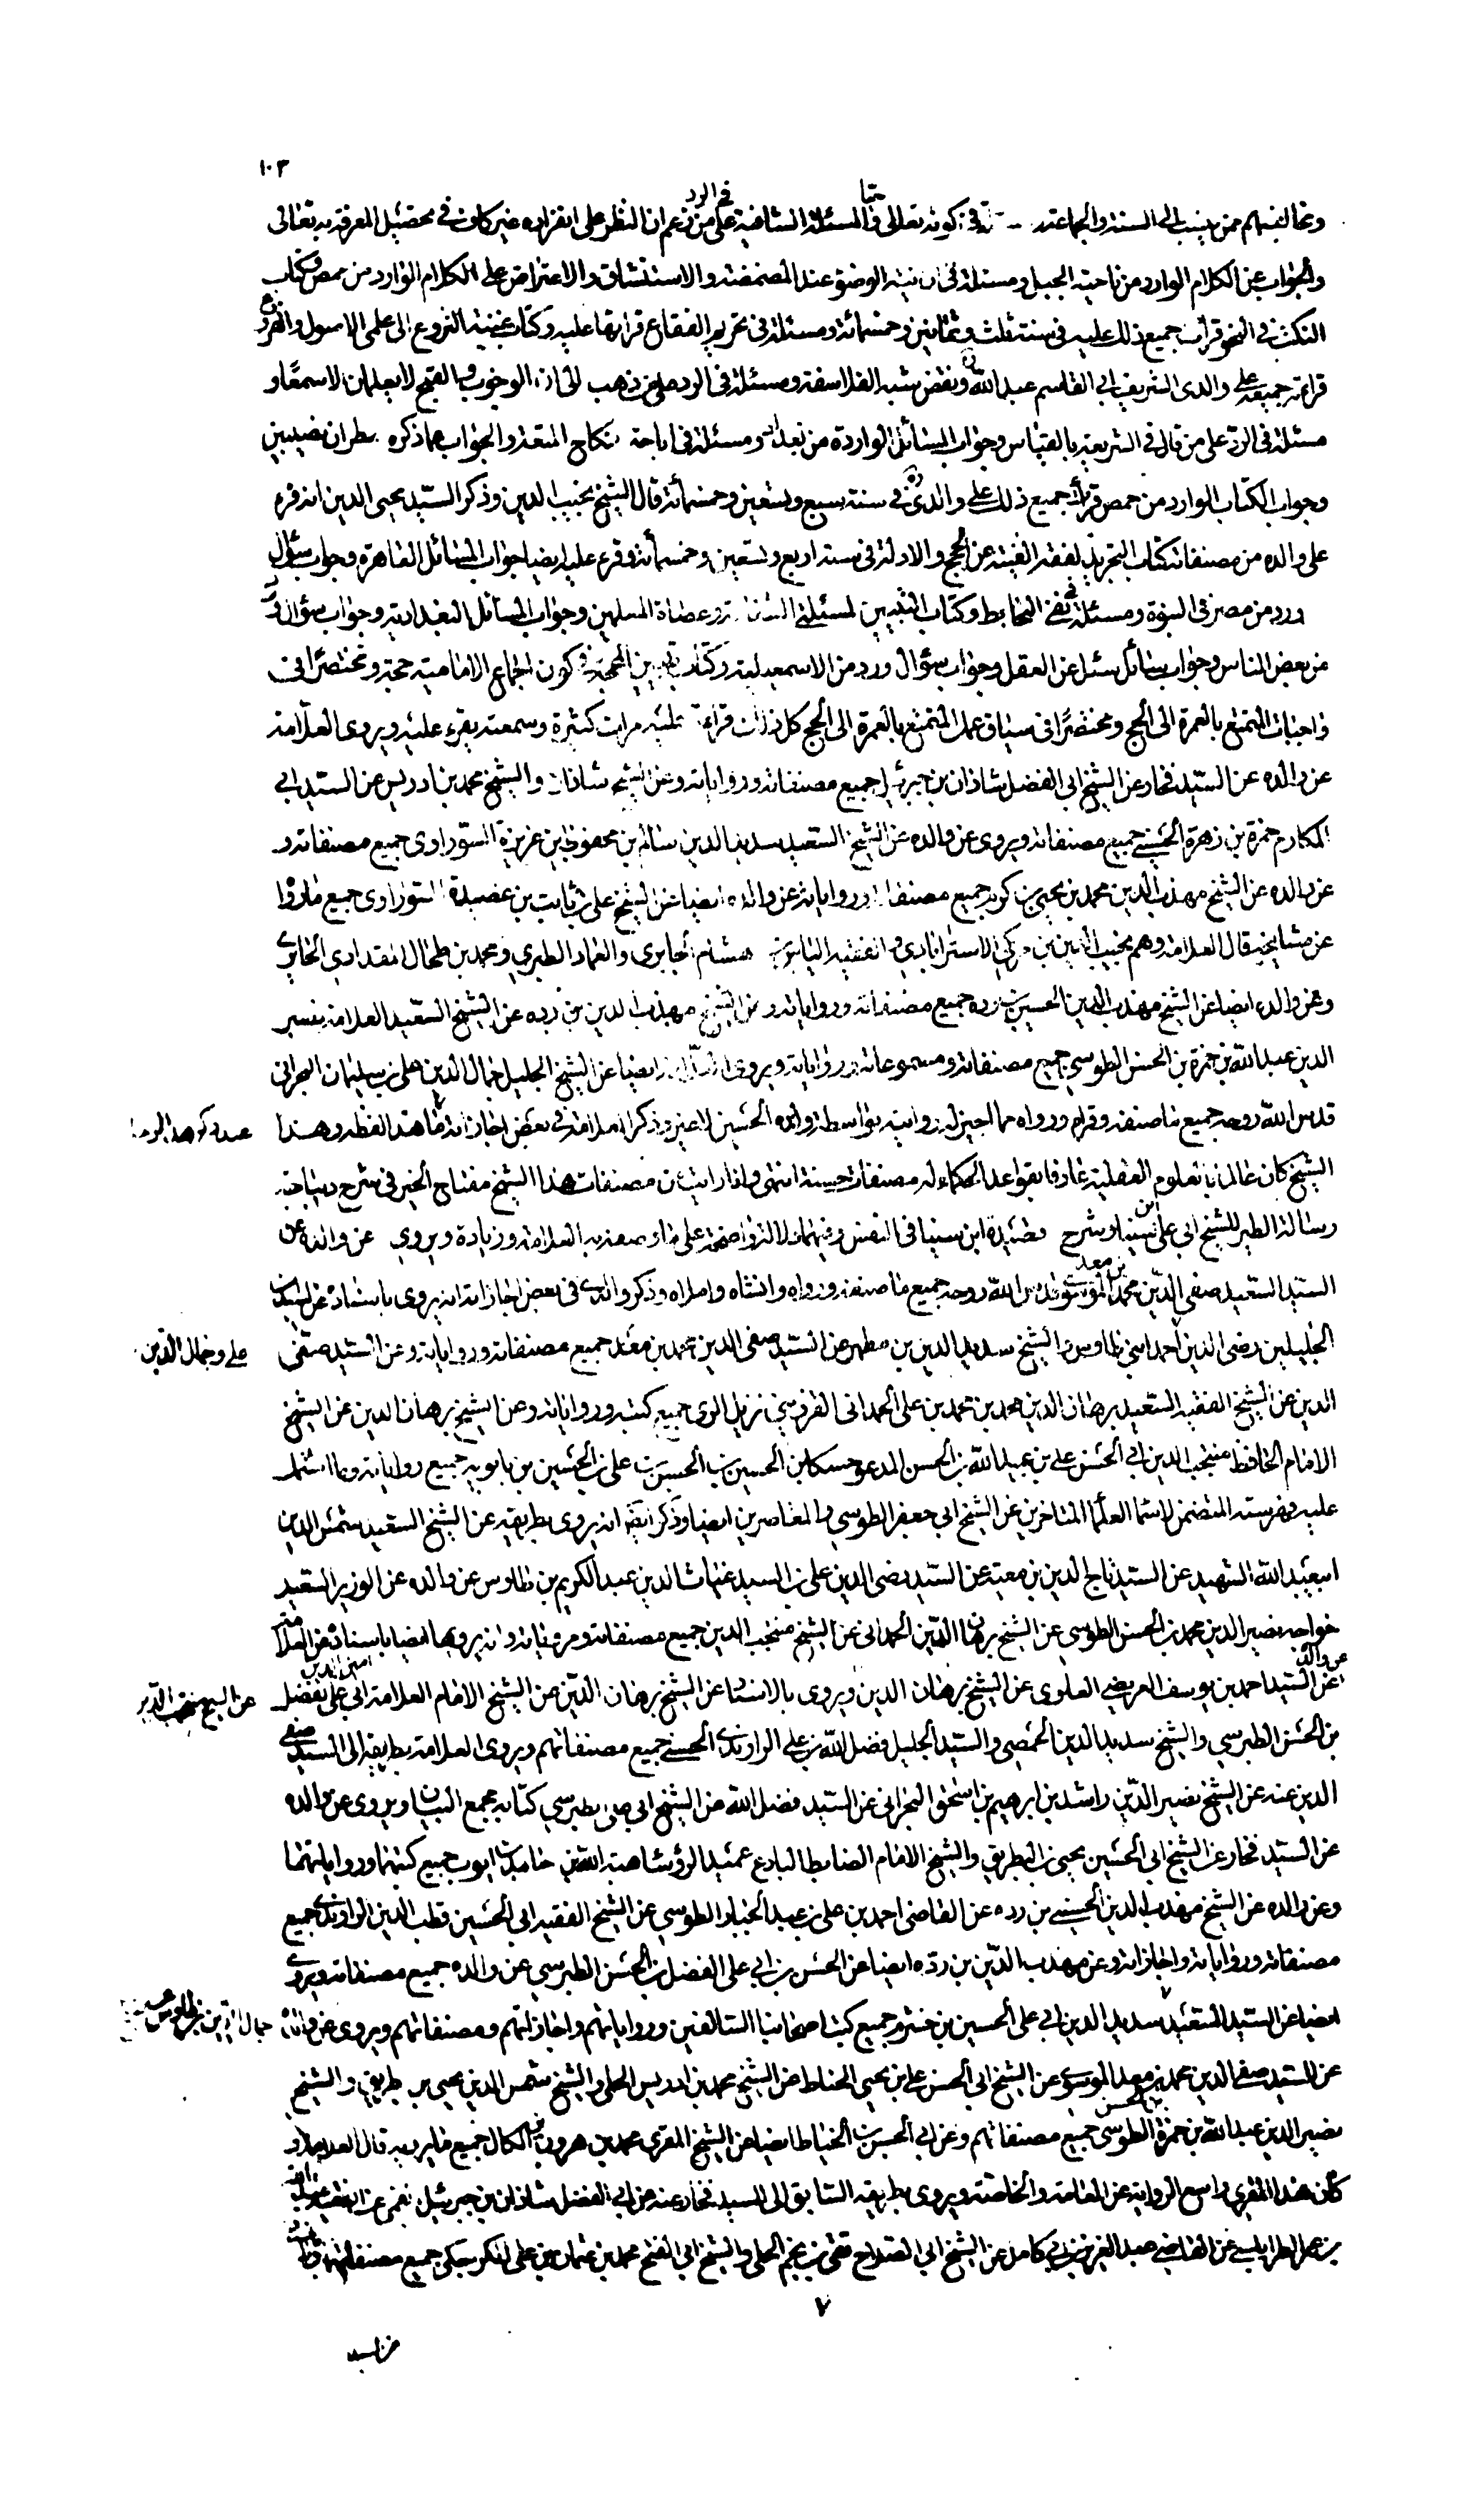 ١٠٣
ومخالفيهم ممن ينسب الى السنة والجماعة في كونه تعالى حيا والمسئلة الشافية في الرد على من زعم ان النظر على انفراده غير كاف في تحصيل المعرفة به تعالى
والجواب عن الكلام الوارد من ناحية الجبل ومسئلة في ان نية الوضوء عند المضمضة والاستنشاق والاعتراض على الكلام الوارد من حمص وكتاب
النكت في النحو قرات جميع ذلك عليه في سنة ثلث وثمانين وخمسمائة ومسئلة في تحريم الفقاع قراتها عليه وكتاب غنية النزوع الى علمي الاصول والفروع
قرائة جميعه على والدى الشريف ابي القاسم عبد الله ونقض شبه الفلاسفة ومسئلة في الرد على من ذهب الى ان الوجوب والقبح لا يعلمان الا سمعا و
مسئلة في الرد على من قال في الشريعة بالقياس وجواب المسائل الواردة من بغداد ومسئلة في اباحة نكاح المتعة والجواب عما ذكره مطران نصيبين
وجواب الكتاب الوارد من حمص قرات جميع ذلك على والدى في سنة سبع وتسعين وخمسمائة قال الشيخ نجيب الدين وذكر السيد محيى الدين انه قرء
على والده من مصنفاته كتاب التجريد لفقه الغنية عن الحجج والادلة في سنة اربع وتسعين وخمسمائة وقرء عليه ايضا جواب المسائل القاهرة وجواب سؤال
ورد من مصر في النبوة ومسئلة في نفي التخابط وكتاب التبيين لمسئلتي الشفاعة وعصاة المسلمين وجواب المسائل البغدادية وجواب سؤال ورد
عن بعض الناس وجواب سائل سئل عن العقل وجواب سؤال ورد من الاسمعيلية وكتاب تبيين المحجة في كون اجماع الامامية حجة ومختصرا في
واجبات المتمتع بالعمرة الى الحج ومختصرا في سياق عمل المتمتع بالعمرة الى الحج كل ذلك قراءة عليه مرات كثيرة وسمعته يقرء عليه ويروى العلامة
عن والده عن السيد فخار عن الشيخ ابي الفضل شاذان بن جبرئيل جميع مصنفاته ورواياته وعن الشيخ شاذان والشيخ محمد بن ادريس عن السيد ابي
المكارم حمزة بن زهرة الحسيني جميع مصنفاته ويروى عن والده عن الشيخ السعيد سديد الدين سالم بن محفوظ بن عزيزة السوراوى جميع مصنفاته و
عن والده عن الشيخ مهذب الدين محمد بن يحيى بن كرم جميع مصنفاته ورواياته وعن والده ايضا عن الشيخ علي بن ثابت بن عصيدة السوراوى جميع ما رواه
عن مشايخه قال العلامة وهم نجيب الدين بن مكي الاسترابادي والفقيه الياس بن هشام الحايرى والعماد الطبري ومحمد بن طحال المقدادي الحايري
وعن والده ايضا عن الشيخ مهذب الدين الحسين بن رده جميع مصنفاته ورواياته وعن الشيخ مهذب الدين بن رده عن الشيخ السعيد العلامة نصير
الدين عبد الله بن حمزة بن الحسن الطوسي جميع مصنفاته ومسموعاته ورواياته ويروى ايضا عن الشيخ الجليل جمال الدين علي بن سليمان البحراني
قدس الله روحه جميع ما صنفه وقراه ورواه مما اجيز له روايته بواسطة ولده الحسين لا غير وذكر العلامة في بعض اجازاته ما هذا لفظه وهذا
الشيخ كان عالما بالعلوم العقلية عارفا بقواعد الحكماء له مصنفات حسنة انتهى وقد رايت من مصنفات هذا الشيخ مفتاح الخير في شرح ديباجة
رسالة الطير للشيخ ابي علي ابن سينا وشرح قصيدة ابن سينا في النفس وفيهما دلالة واضحة على ما وصفه به العلامة وزيادة ويروي عن والده عن
السيد السعيد صفي الدين محمد بن معد الموسوي قدس الله روحه جميع ما صنفه ورواه وانشاه واملاه وذكر والدي في بعض اجازاته انه يروى باسناده عن السيدين
الجليلين رضي الدين علي وجمال الدين احمد ابني طاوس والشيخ سديد الدين بن مطهر عن السيد صفي الدين محمد بن معد جميع مصنفاته ورواياته وعن السيد صفي
الدين عن الشيخ الفقيه السعيد برهان الدين محمد بن محمد بن علي الحمداني القزويني نزيل الرى جميع كتبه ورواياته وعن الشيخ برهان الدين عن الشيخ
الامام الحافظ منتجب الدين ابي الحسن علي بن عبيد الله بن الحسن المدعو حسكا بن الحسين بن الحسن بن علي بن الحسين بن بابويه جميع رواياته وما اشتمل
عليه فهرسته المتضمن لاسماء العلماء المتاخرين عن الشيخ ابي جعفر الطوسي والمعاصرين ايضا وذكر ايضا انه يروى بطريقه عن الشيخ السعيد شمس الدين
ابي عبد الله الشهيد عن السيد تاج الدين بن معية عن السيد رضي الدين علي بن السيد غياث الدين عبد الكريم بن طاوس عن والده عن الوزير السعيد
خواجه نصير الدين محمد بن الحسن الطوسي عن الشيخ برهان الدين الحمداني عن الشيخ منتجب الدين جميع مصنفاته ومروياته وانه يرويها ايضا باسناده عن العلامة
عن والده عن السيد احمد بن يوسف العريضي العلوي عن الشيخ برهان الدين ويروى بالاسناد عن الشيخ برهان الدين عن الشيخ منتجب الدين عن الشيخ الامام العلامة امين الدين ابي علي الفضل
بن الحسن الطبرسي والشيخ سديد الدين الحمصي والسيد الجليل فضل الله بن علي الراوندي الحسني جميع مصنفاتهم ويروى العلامة بطريقه الى السيد صفي
الدين عنه عن الشيخ نصير الدين راشد بن ابرهيم بن اسحق البحراني عن السيد فضل الله عن الشيخ ابي علي الطبرسي كتابه مجمع البيان ويروى عن والده
عن السيد فخار عن الشيخ ابي الحسين يحيى بن البطريق والشيخ الامام الضابط البارع عميد الرؤساء هبة الله بن حامد بن ايوب جميع كتبهما ورواياتهما
وعن والده عن الشيخ مهذب الدين الحسين بن رده عن القاضي احمد بن علي بن عبد الجبار الطوسي عن الشيخ الفقيه ابي الحسين قطب الدين الراوندي جميع
مصنفاته ورواياته واجازاته وعن مهذب الدين بن رده ايضا عن الحسن بن ابي علي الفضل بن الحسن الطبرسي عن والده جميع مصنفاته ويروى
ايضا عن السيد السعيد جمال الدين بن طاوس عن سديد الدين ابي علي الحسين بن خشرم جميع كتب اصحابنا السالفين ورواياتهم واجازاتهم ومصنفاتهم ويروى عن والده
عن السيد صفي الدين محمد بن معد الموسوي عن الشيخ ابي الحسن علي بن يحيى الخياط عن الشيخ محمد بن ادريس الحلي والشيخ شمس الدين يحيى بن بطريق والشيخ
نصير الدين عبد الله بن حمزة بن الحسن الطوسي جميع مصنفاتهم وعن ابي الحسن بن الخياط ايضا عن الشيخ المقري محمد بن هرون بن الكال جميع ما يرويه قال العلامة و
كان هذا المقري واسع الرواية عن العامة والخاصة ويروى بطريقه السابق الى السيد فخار عنه عن ابي الفضل شاذان بن جبرئيل القمي عن الفقيه عبد الله
بن عمر الطرابلسي عن القاضي عبد العزيز بن ابي كامل عن الشيخ ابي الصلاح تقي بن نجم الحلبي والشيخ ابي الفتح محمد بن عثمان بن علي الكراجكي جميع مصنفاتهما
٧